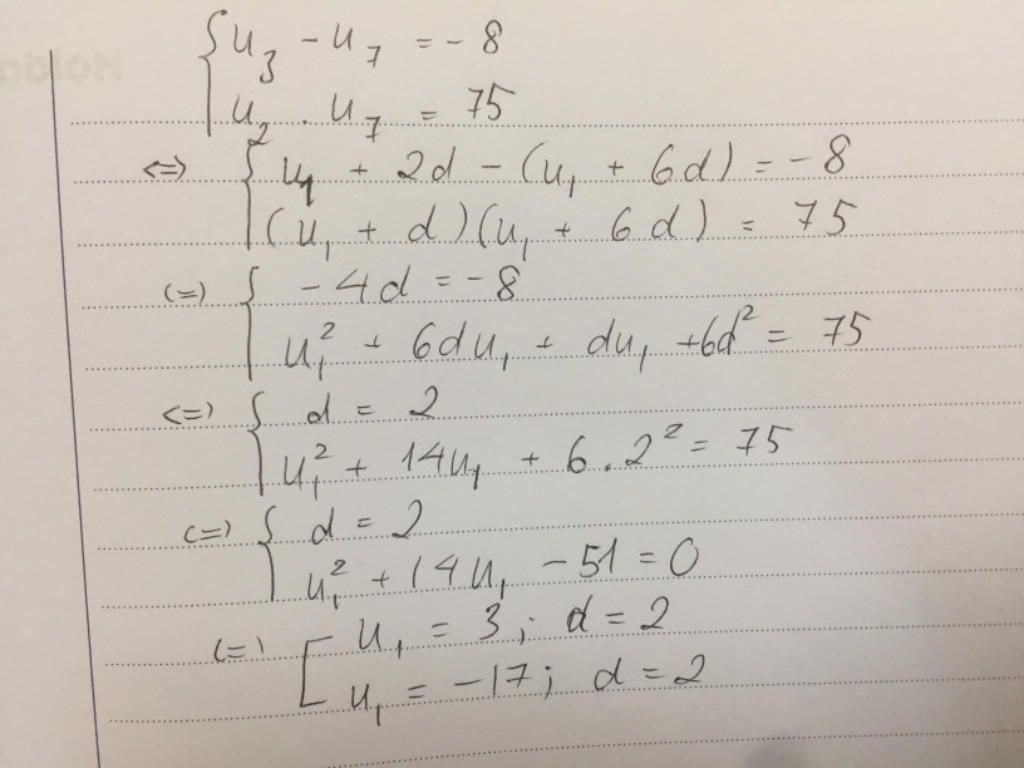 { u₃ - u₇ = - 8
u₂ . u₇ = 75
<=> { u₁ + 2d - (u₁ + 6d) = - 8
(u₁ + d)(u₁ + 6d) = 75
(=) { - 4d = - 8
u₁² + 6du₁ + du₁ + 6d² = 75
<=) { d = 2
u₁² + 14u₁ + 6 . 2² = 75
(=) { d = 2
u₁² + 14u₁ - 51 = 0
(=) [ u₁ = 3 ; d = 2
u₁ = - 17 ; d = 2